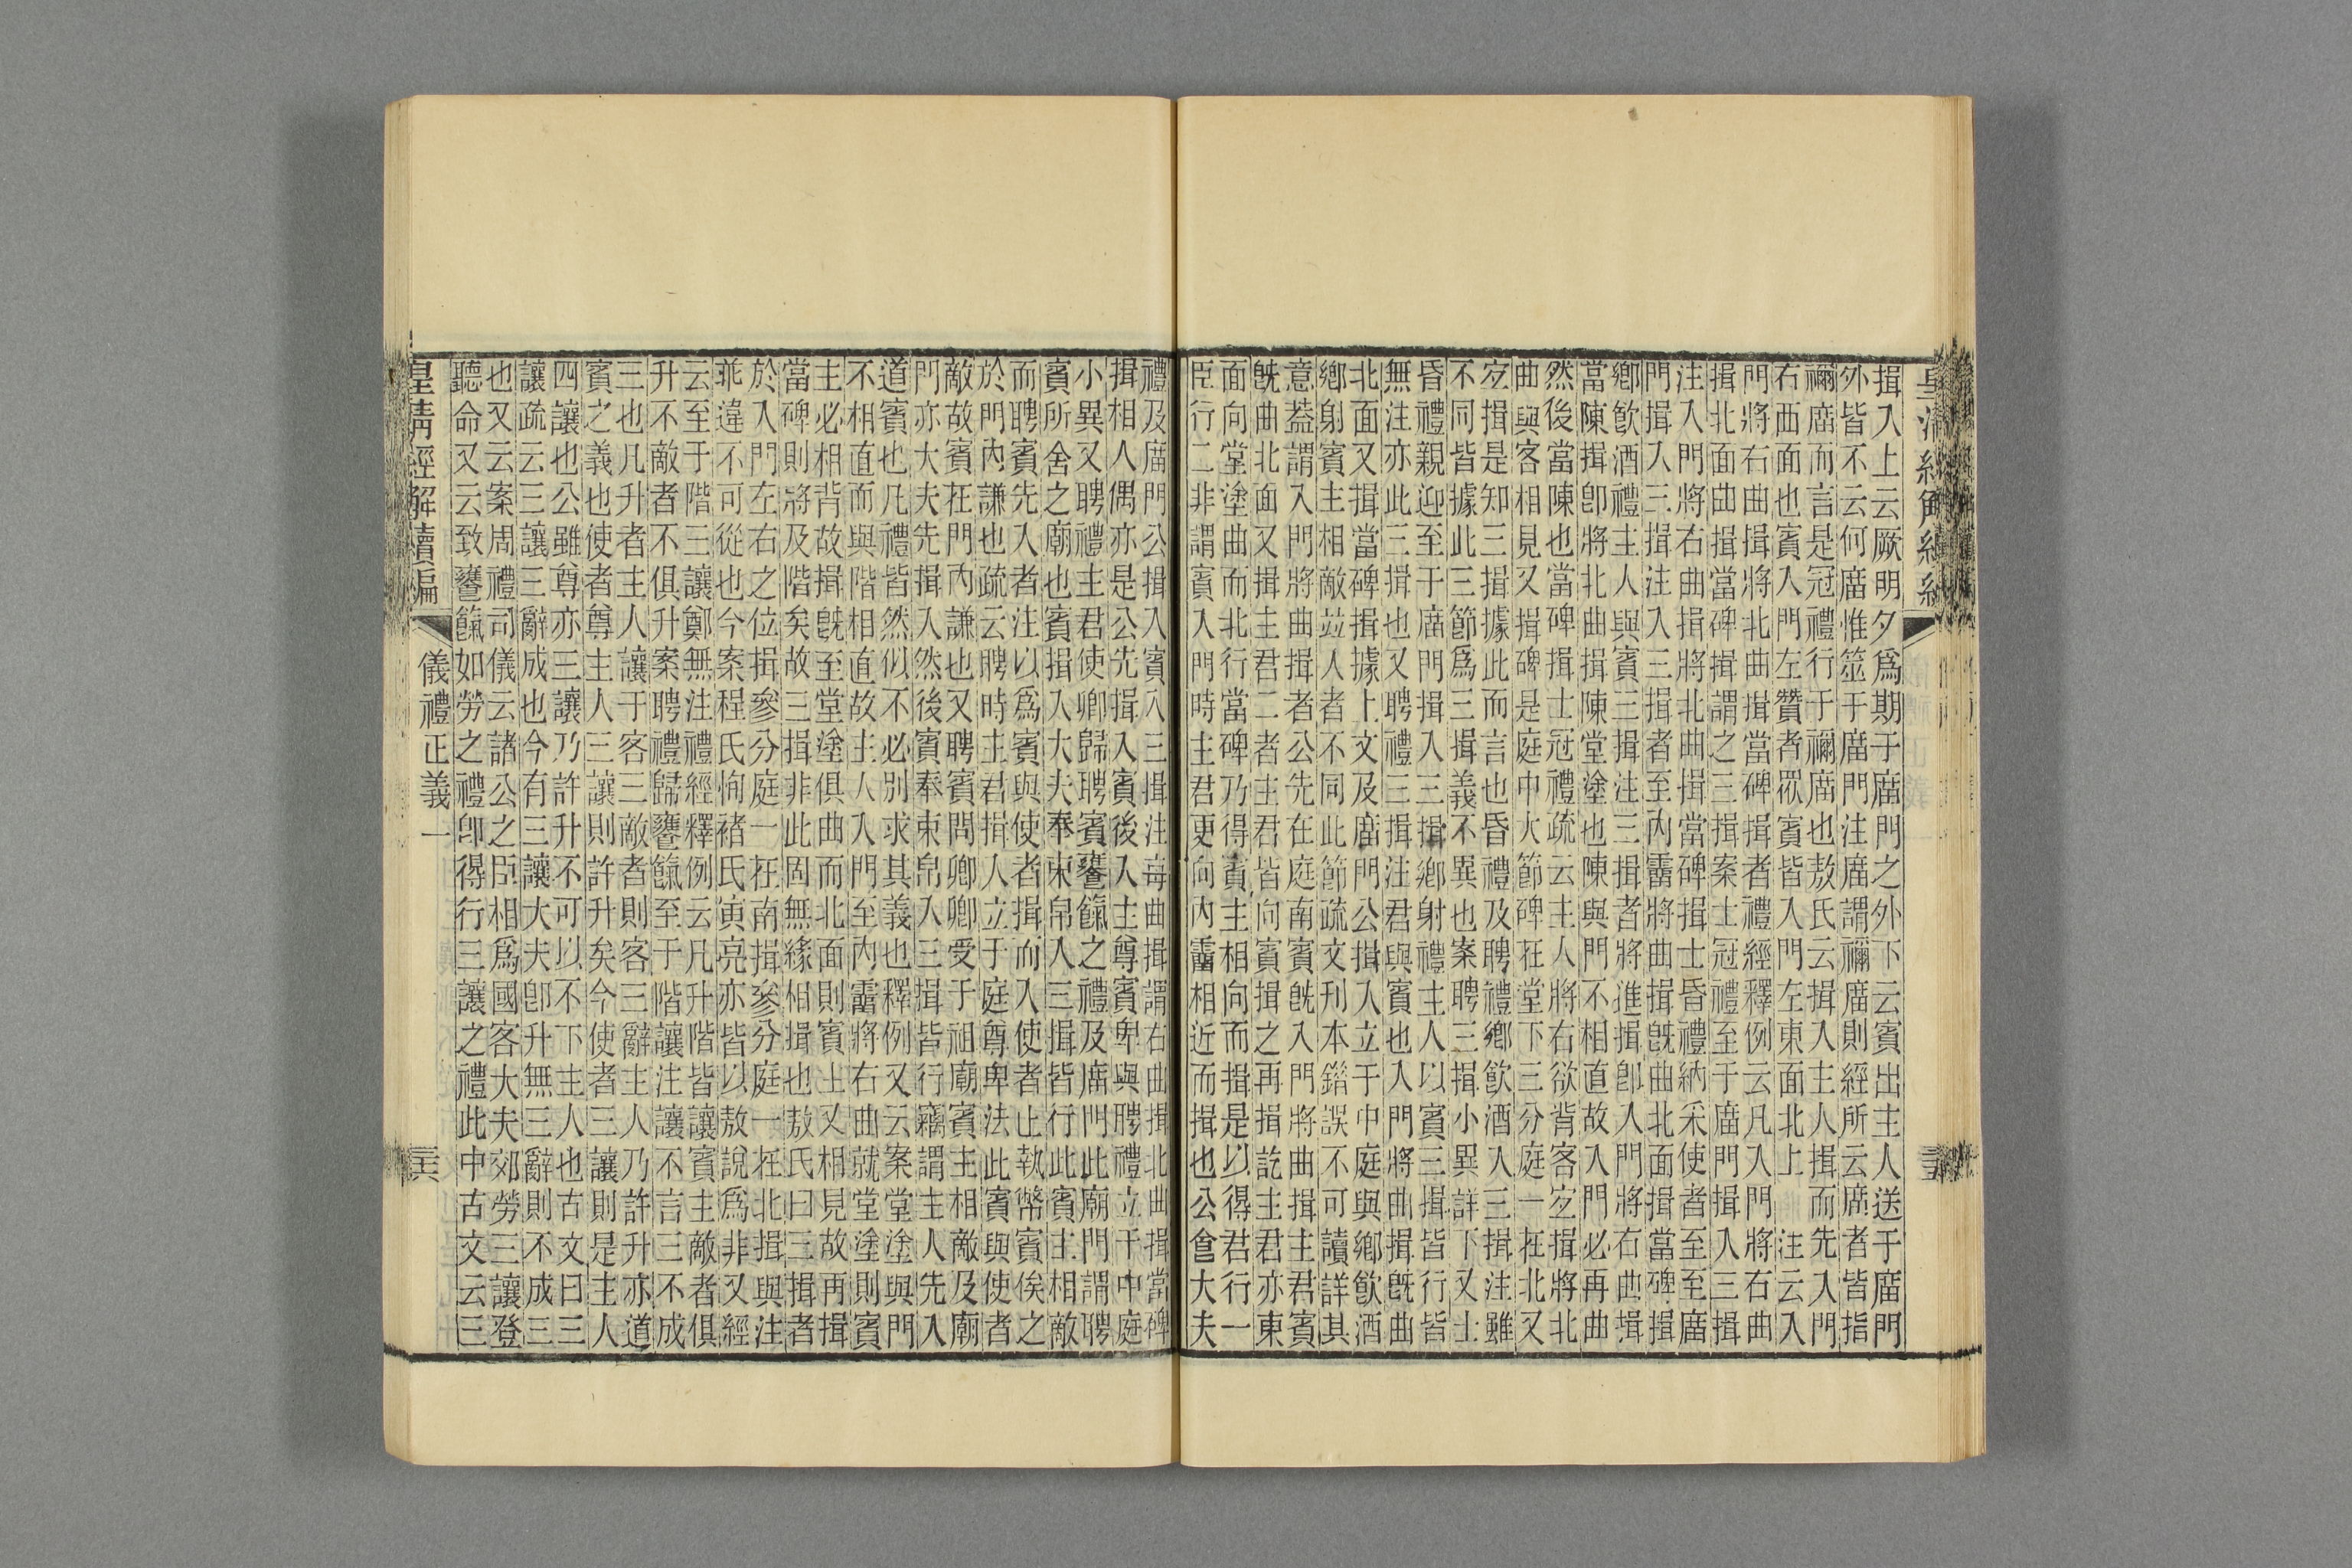 揖入上云厥明夕爲期于廟門之外下云賓出主人送于廟門
外皆不云何廟惟筮于廟門注廟謂禰廟則經所云廟者皆指
禰廟而言是冠禮行于禰廟也敖氏云揖入主人揖而先入門
右西面也賓入門左贊者眾賓皆入門左東面北上 注云入
門將右曲揖將北曲揖當碑揖者禮經釋例云凡入門將右曲
揖北面曲揖當碑揖謂之三揖案士冠禮至于廟門揖入三揖
注入門將右曲揖將北曲揖當碑揖士昏禮納采使者至至廟
門揖入三揖注入三揖者至內霤將曲揖旣曲北面揖當碑揖
鄉飮酒禮主人與賓三揖注三揖者將進揖卽入門將右曲揖
當陳揖卽將北曲揖陳堂塗也陳與門不相直故入門必再曲
然後當陳也當碑揖士冠禮疏云主人將右欲背客宐揖將北
曲與客相見又揖碑是庭中大節碑在堂下三分庭一在北又
宐揖是知三揖據此而言也昏禮及聘禮鄉飮酒入三揖注雖
不同皆據此三節爲三揖義不異也案聘三揖小異詳下又士
昏禮親迎至于廟門揖入三揖鄉射禮主人以賓三揖皆行皆
無注亦此三揖也又聘禮三揖注君與賓也入門將曲揖旣曲
北面又揖當碑揖據上文及廟門公揖入立于中庭與鄉飮酒
鄉射賓主相敵竝人者不同此節疏文刊本錯誤不可讀詳其
意葢謂入門將曲揖者公先在庭南賓旣入門將曲揖主君賓
旣曲北面又揖主君二者主君皆向賓揖之再揖訖主君亦東
面向堂塗曲而北行當碑乃得賓主相向而揖是以得君行一
臣行二非謂賓入門時主君更向內霤相近而揖也公會大夫
禮及廟門公揖入賓入三揖注每曲揖謂右曲揖北曲揖當碑
揖相人偶亦是公先揖入賓後入主尊賓卑與聘禮立于中庭
小異又聘禮主君使卿歸聘賓饔餼之禮及廟門此廟門謂聘
賓所舍之廟也賓揖入大夫奉束帛入三揖皆行此賓主相敵
而聘賓先入者注以爲賓與使者揖而入使者止執幣賓俟之
於門內謙也疏云聘時主君揖人立于庭尊卑法此賓與使者
敵故賓在門內謙也又聘賓問卿卿受于祖廟賓主相敵及廟
門亦大夫先揖入然後賓奉束帛入三揖皆行竊謂主人先入
道賓也凡禮皆然似不必別求其義也釋例又云案堂塗與門
不相直而與階相直故主人入門至內霤將右曲就堂塗則賓
主必相背故揖旣至堂塗俱曲而北面則賓主又相見故再揖
當碑則將及階矣故三揖非此固無緣相揖也敖氏曰三揖者
於入門左右之位揖參分庭一在南揖參分庭一在北揖與注
乖違不可從也今案程氏恂褚氏寅亮亦皆以敖說爲非又經
云至于階三讓鄭無注禮經釋例云凡升階皆讓賓主敵者俱
升不敵者不俱升案聘禮歸饔餼至于階讓注讓不言三不成
三也凡升者主人讓于客三敵者則客三辭主人乃許升亦道
賓之義也使者尊主人三讓則許升矣今使者三讓則是主人
四讓也公雖尊亦三讓乃許升不可以不下主人也古文曰三
讓疏云三讓三辭成也今有三讓大夫卽升無三辭則不成三
也又云案周禮司儀云諸公之臣相爲國客大夫郊勞三讓登
聽命又云致饔餼如勞之禮卽得行三讓之禮此中古文云三
皇清經解續編
儀禮正義一